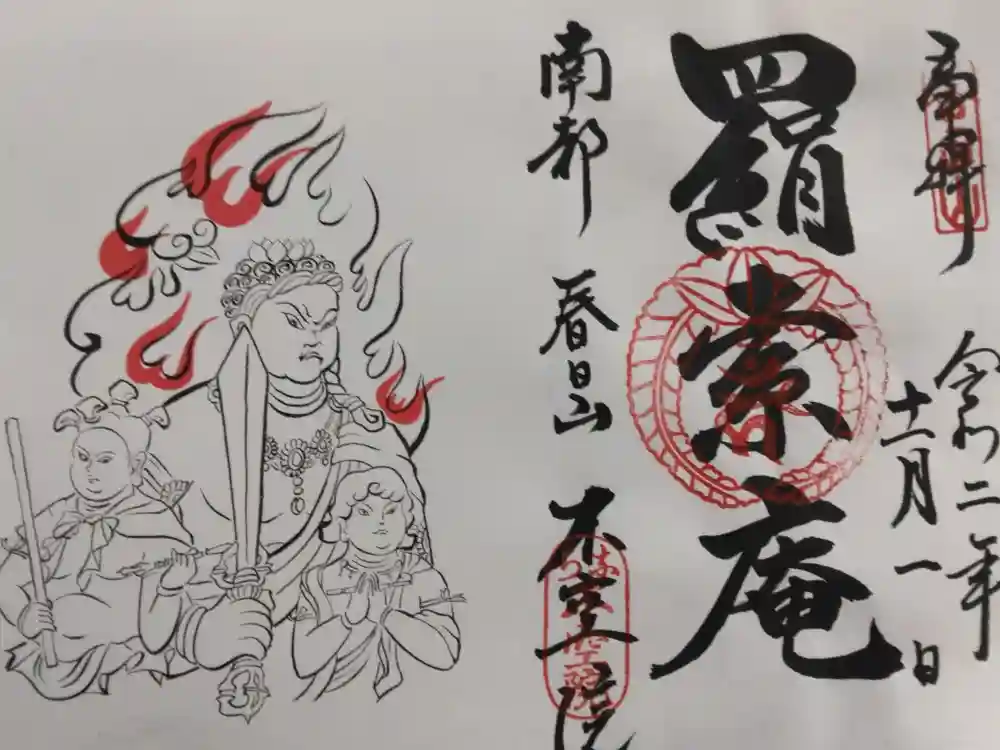 奉拝
令和二年
十一月一日
羂索庵
南都 春日山 不空院